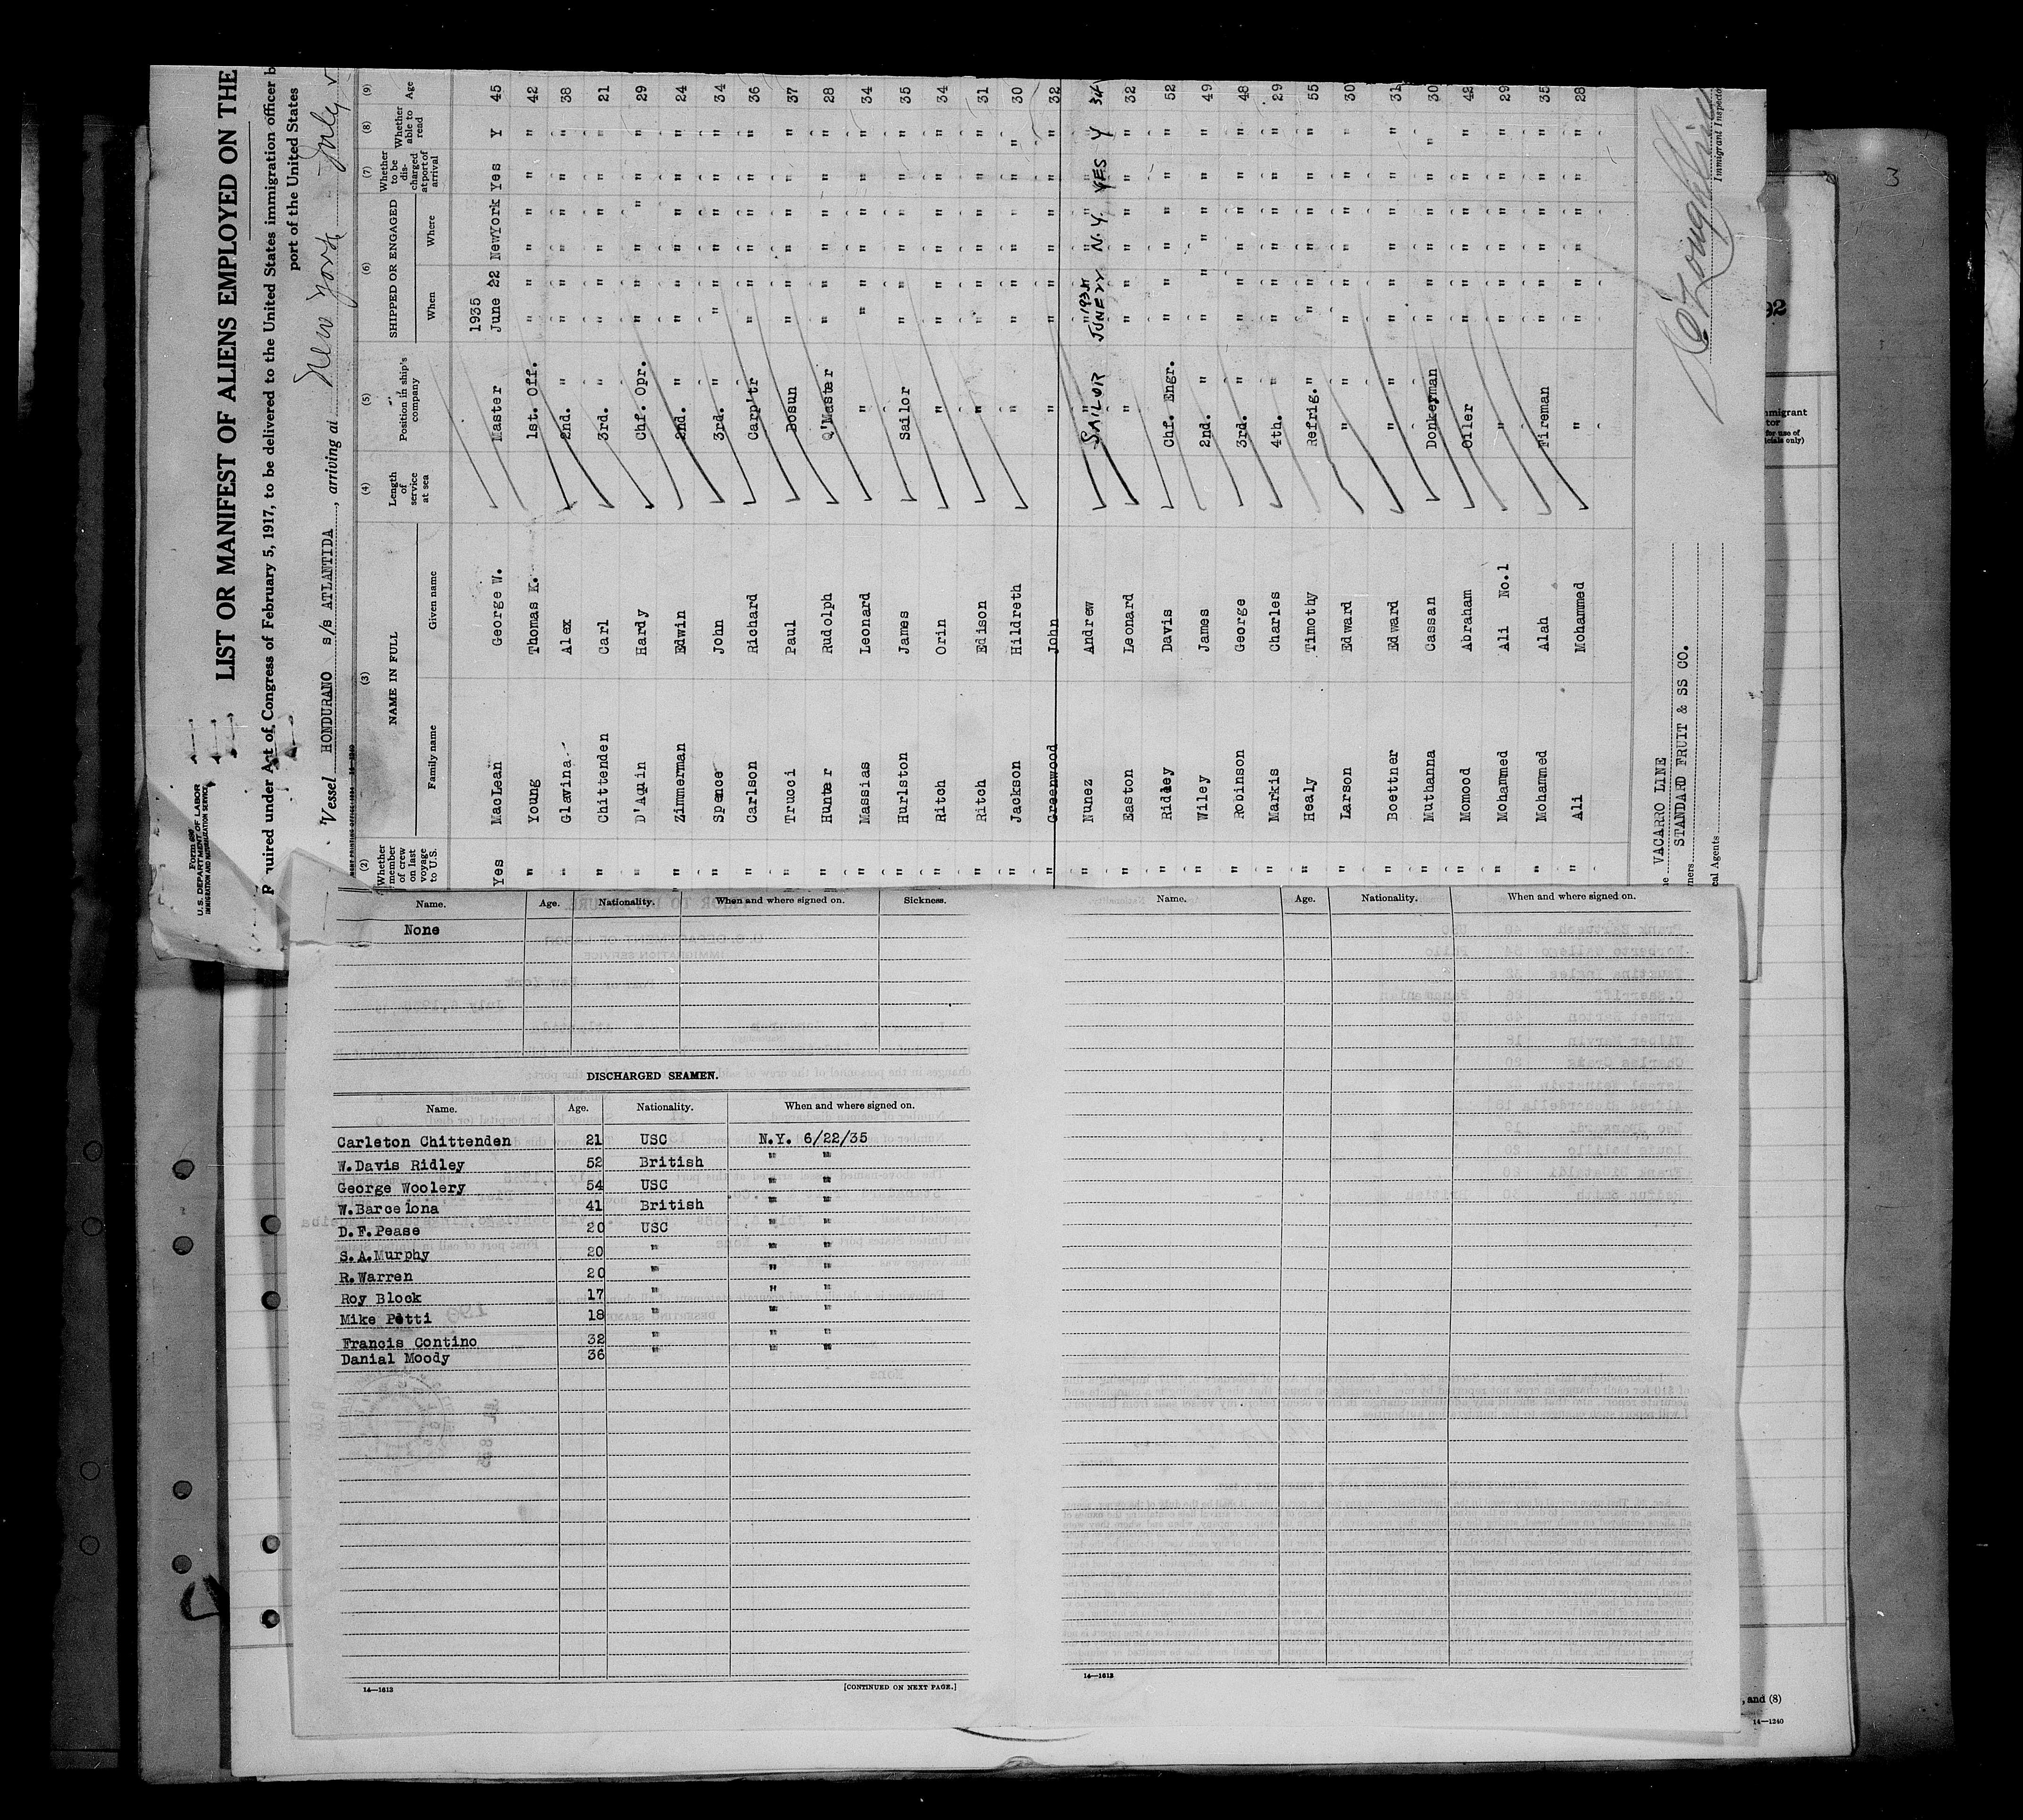 Form 680
U. S. DEPARTMENT OF LABOR
IMMIGRATION AND NATURALIZATION SERVICE
LIST OR MANIFEST OF ALIENS EMPLOYED ON THE
Required under Act of Congress of February 5, 1917, to be delivered to the United States immigration officer b
port of the United States
Vessel HONDURANO s/s ATLANTIDA, arriving at New York July
(2) (3) (4) (5) (6) (7) (8) (9)
Whether member of crew on last voyage to U.S. NAME IN FULL Length of service at sea Position in ship's company SHIPPED OR ENGAGED Whether to be discharged at port of arrival Whether able to read Age
Family name Given name When Where
1935
Yes MacLean George W. Master June 22 NewYork Yes Y 45
" Young Thomas K. 1st. Off. " " " " " " 42
" Glavina Alex 2nd. " " " " " " " 38
" Chittenden Carl 3rd. " " " " " " " 21
" D'Aquin Hardy Chf. Opr. " " " " " " 29
" Zimmerman Edwin 2nd. " " " " " " " 24
" Spence John 3rd. " " " " " " " 34
" Carlson Richard Carp'tr " " " " " " 36
" Trucci Paul Bosun " " " " " " 37
" Hunter Rudolph Q'Master " " " " " " 28
" Massias Leonard " " " " " " " 34
" Hurlston James Sailor " " " " " " 35
" Ritch Orin " " " " " " " 34
" Ritch Edison " " " " " " " 31
" Jackson Hildreth " " " " " " " 30
" Greenwood John " " " " " " " 32
" Nunez Andrew SAILOR 1935 JUNE 22 N.Y. YES Y 34
" Easton Leonard " " " " " " " 32
" Ridley Davis Chf. Engr. " " " " " " 52
" Wiley James 2nd. " " " " " " " 49
" Robinson George 3rd. " " " " " " " 48
" Markis Charles 4th. " " " " " " " 29
" Healy Timothy Refrig." " " " " " " 55
" Larson Edward " " " " " " " 30
" Boettner Edward " " " " " " " 31
" Muthanna Cassan Donkeyman " " " " " " 30
" Momood Abraham Oiler " " " " " " 42
" Mohammed Ali No.1 " " " " " " " 29
" Mohammed Alah Fireman " " " " " " 35
" Ali Mohammed " " " " " " " 28
VACARRO LINE
STANDARD FRUIT & SS CO.
Immigrant Inspector
Name. Age. Nationality. When and where signed on. Sickness.
None
DISCHARGED SEAMEN.
Name. Age. Nationality. When and where signed on.
Carleton Chittenden 21 USC N.Y. 6/22/35
W.Davis Ridley 52 British " "
George Woolery 54 USC " "
W.Barcelona 41 British " "
D.F.Pease 20 USC " "
S.A.Murphy 20 " " "
R.Warren 20 " " "
Roy Block 17 " " "
Mike Petti 18 " " "
Francis Contino 32 " " "
Danial Moody 36 " " "
14—1613
[CONTINUED ON NEXT PAGE.]
Name. Age. Nationality. When and where signed on.
14—1613
, and (8)
14—1240